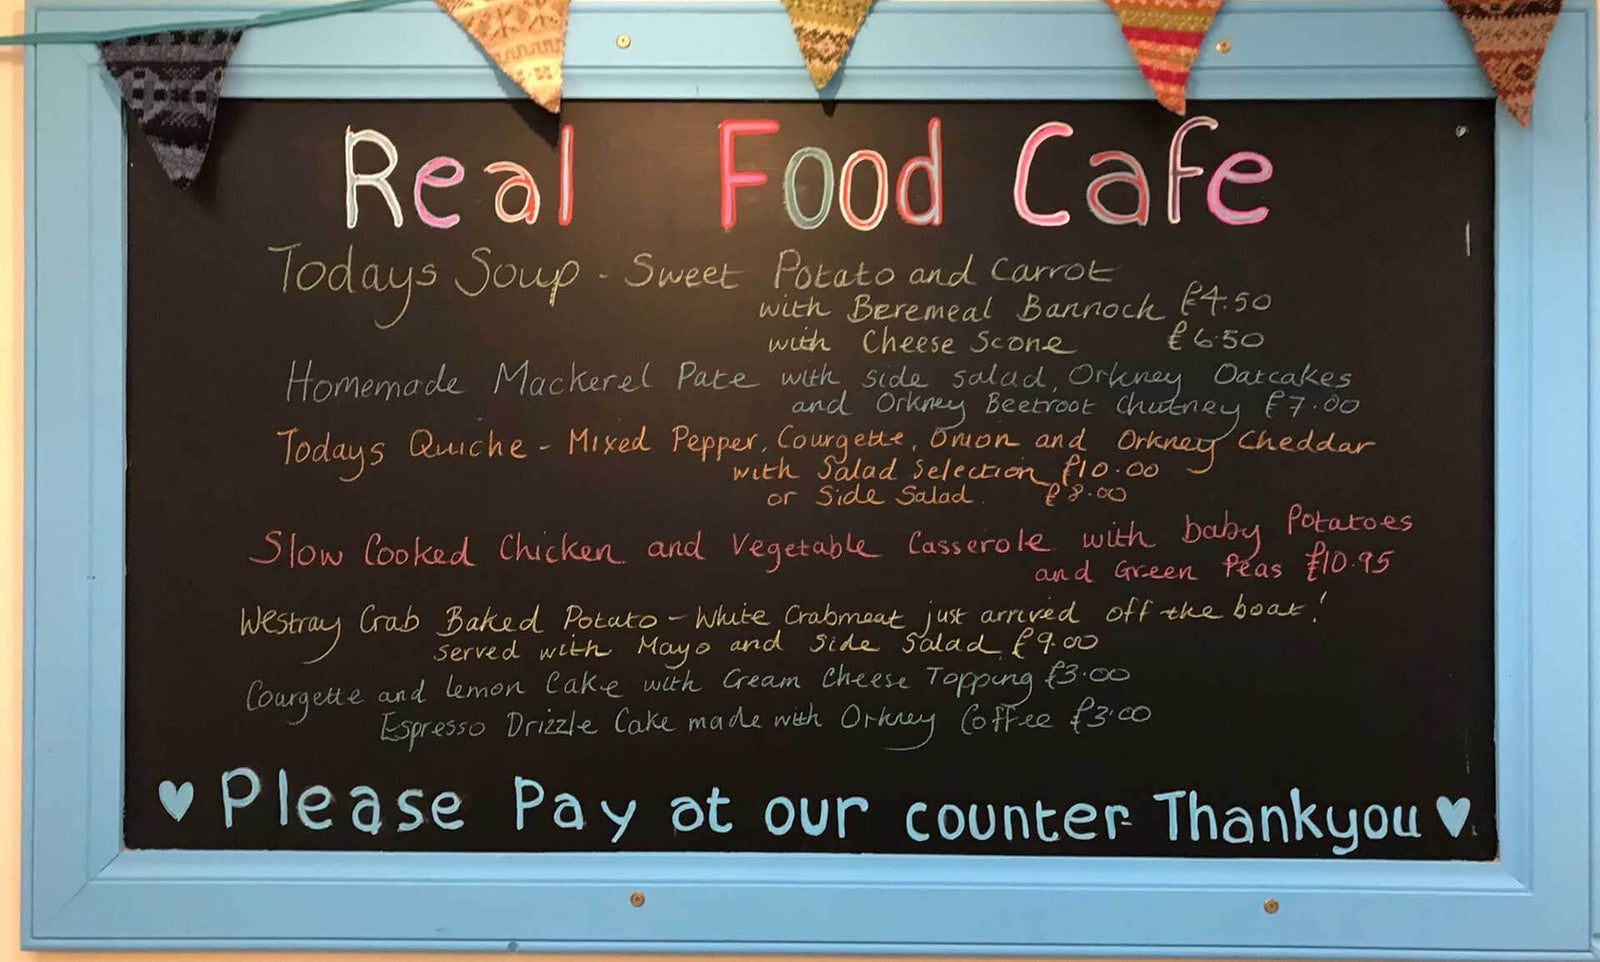 Real Food Cafe
Todays Soup - Sweet Potato and Carrot
with Beremeal Bannock £4.50
with Cheese Scone £6.50
Homemade Mackerel Pate with side salad, Orkney Oatcakes
and Orkney Beetroot Chutney £7.00
Todays Quiche - Mixed Pepper, Courgette, Onion and Orkney Cheddar
with Salad Selection £10.00
or Side Salad. £8.00
Slow Cooked Chicken and Vegetable Casserole with baby Potatoes
and Green Peas £10.95
Westray Crab Baked Potato - White Crabmeat just arrived off the boat!
served with Mayo and Side Salad £9.00
Courgette and Lemon Cake with Cream Cheese Topping £3.00
Espresso Drizzle Cake made with Orkney Coffee £3.00
♥ Please Pay at our counter Thankyou ♥